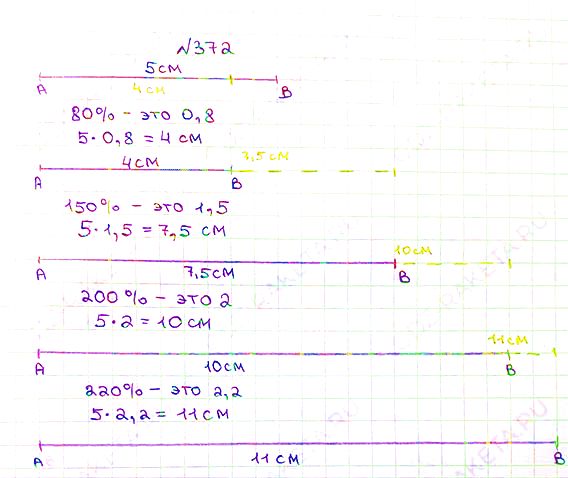 №372
5 см
А 4 см В
80% - это 0,8
5·0,8 = 4 см
4 см 3,5 см
А В
150% - это 1,5
5·1,5 = 7,5 см
10 см
А 7,5 см В
200% - это 2
5·2 = 10 см
11 см
А 10 см В
220% - это 2,2
5·2,2 = 11 см
А 11 см В